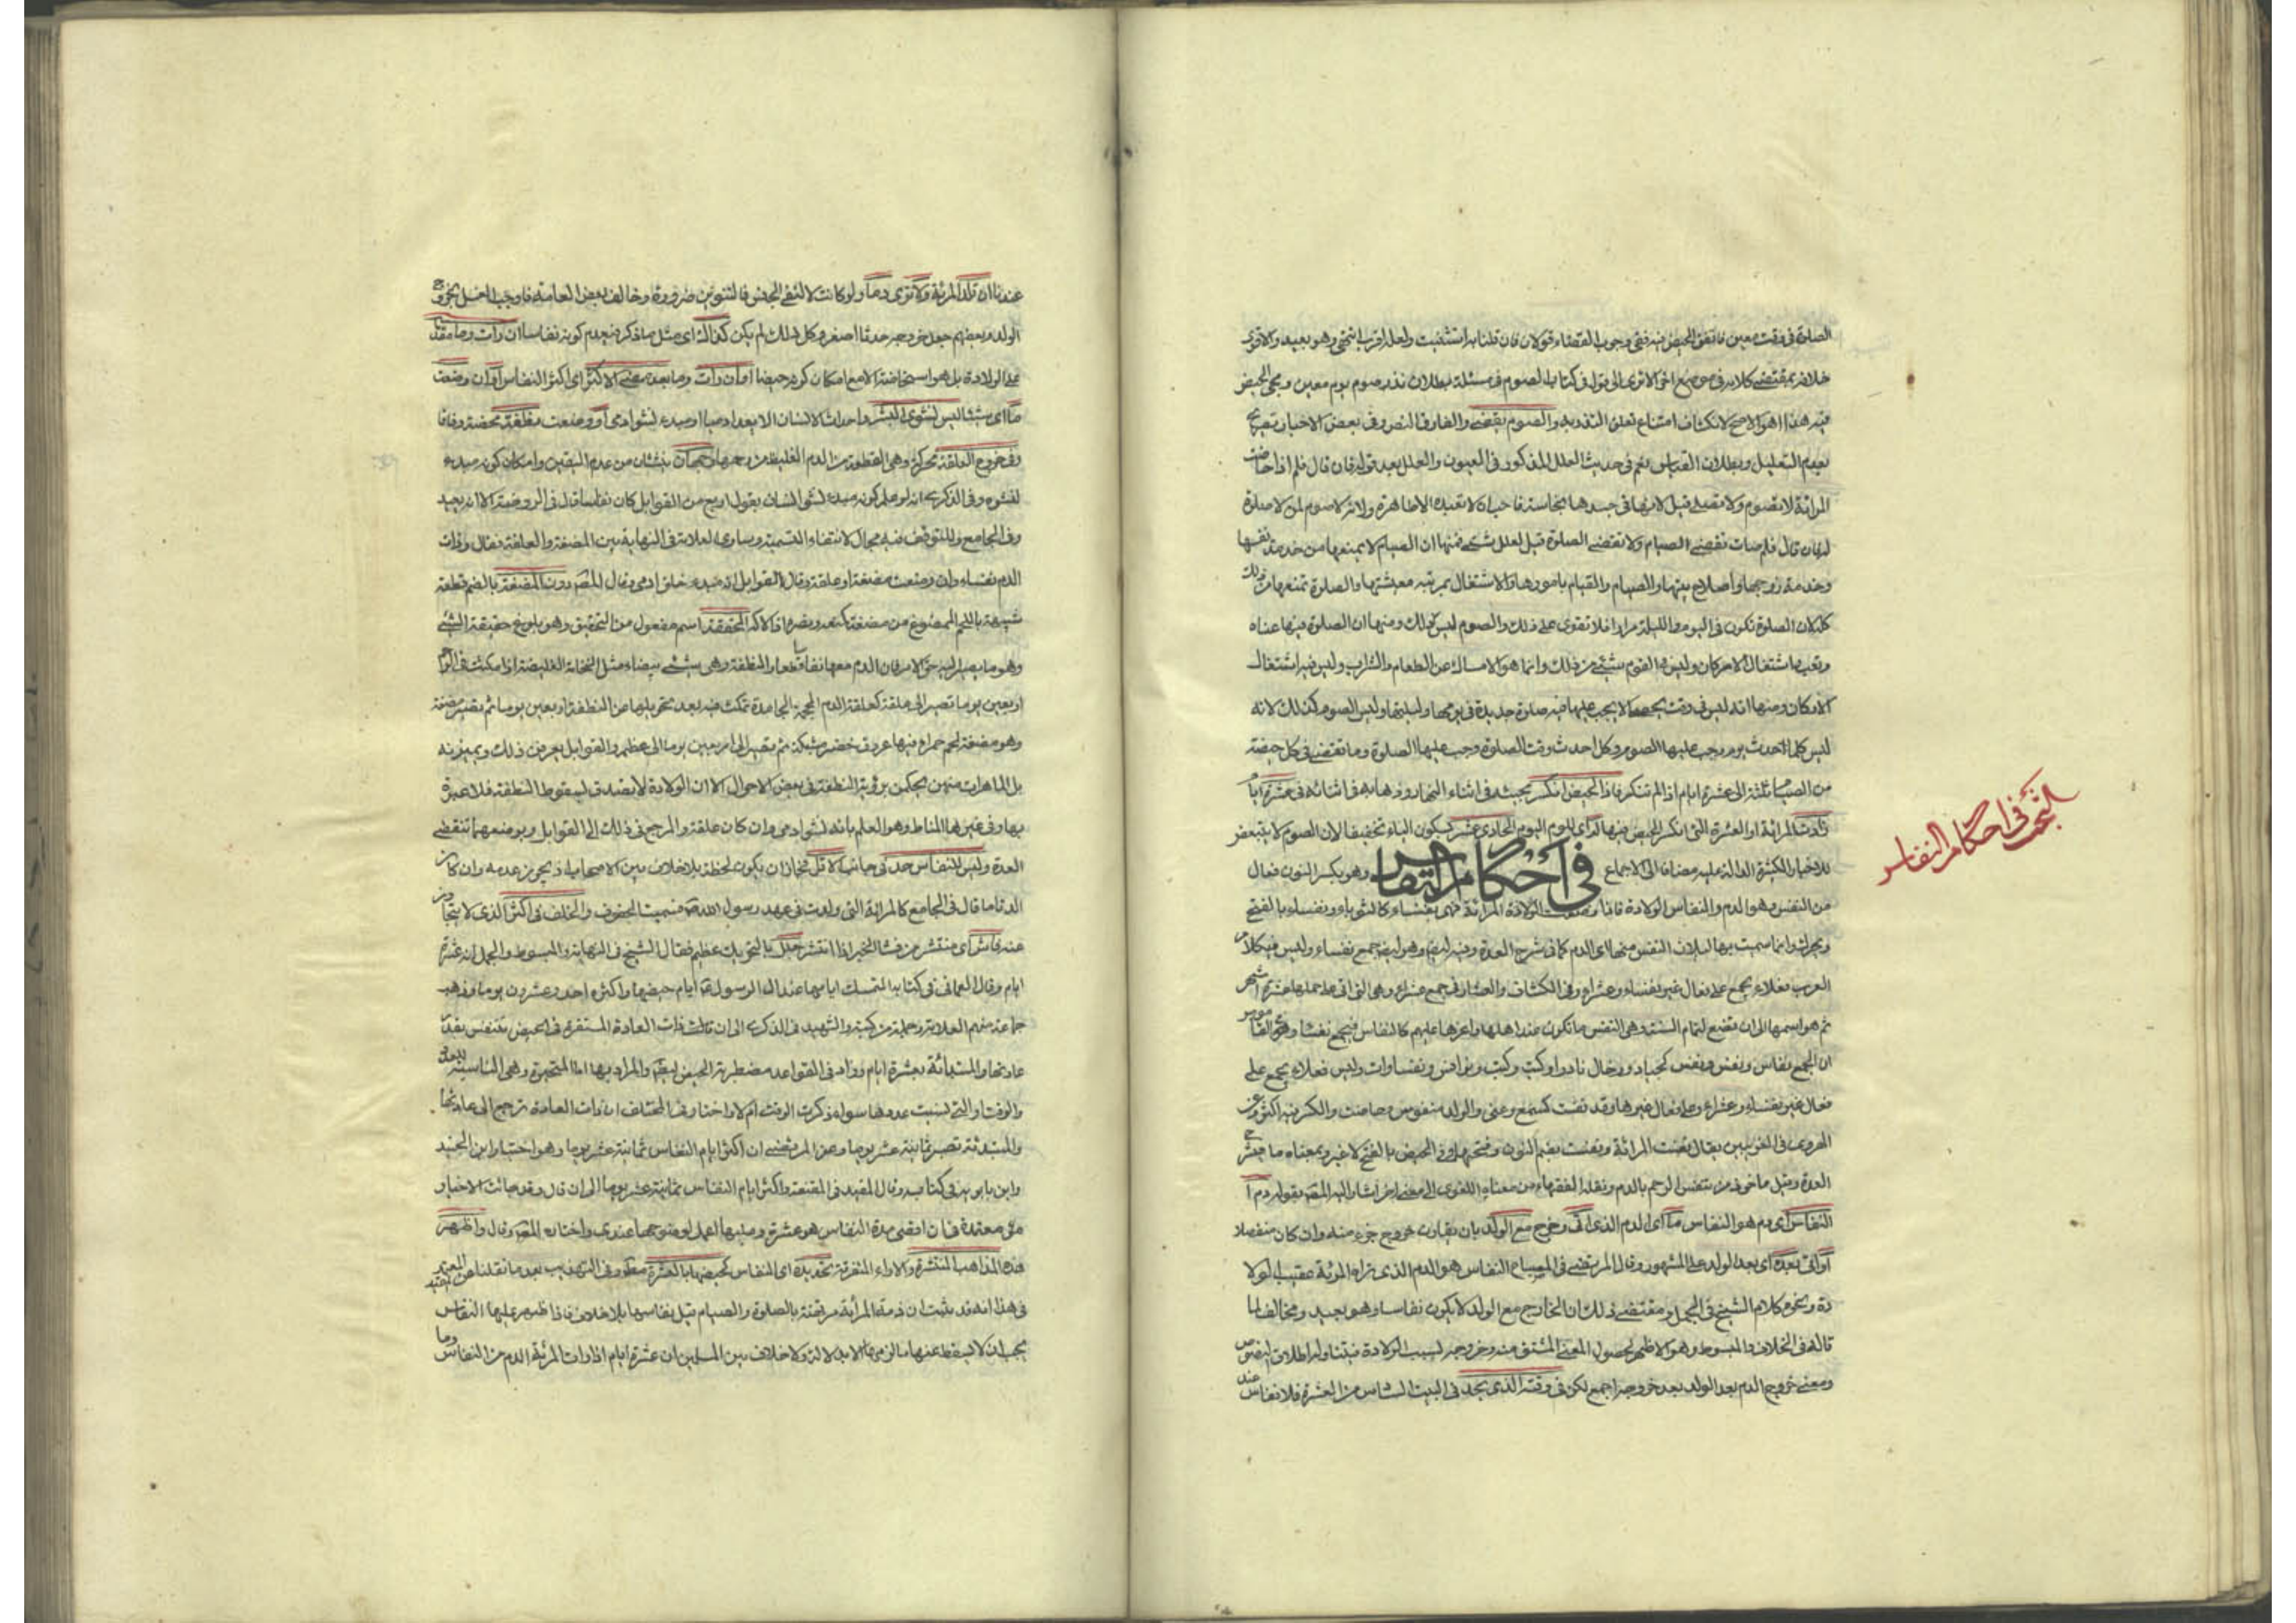 الصلوة في وقت معين فاتفق الحيض فيه ففي وجوب القضاء قولان فان قلنا به استثنيت ولعله اقرب انتهى وهو بعيد والاقوى
خلافه بمقتضى كلامه في موضع اخر الا ترى الى قوله في كتاب الصوم في مسئلة بطلان نذر صوم يوم معين ومجئ الحيض
فيه هذا هو الاصح لانكشاف امتناع تعلق النذر به والصوم يقضى والفارق النص وفي بعض الاخبار تصريح
بعدم التعليل وبطلان القياس نعم في حديث العلل المذكور في العيون والعلل بعد قوله فان قال فلم اذا حاضت
المرائة لا تصوم ولا تصلي قيل لانها في حد نجاسة فاحب ان لا تعبده الا طاهرة ولانه لا صوم لمن لا صلوة
له فان قال فلم صارت تقضي الصيام ولا تقضي الصلوة قيل لعلل شتى فمنها ان الصيام لا يمنعها من خدمة نفسها
وخدمة زوجها واصلاح بيتها والقيام بامورها والاشتغال بمرمة معيشتها والصلوة تمنعها من ذلك
كله لان الصلوة تكون في اليوم والليلة مرارا فلا تقوى على ذلك والصوم ليس كذلك ومنها ان الصلوة فيها عناء
وتعب واشتغال الاركان وليس في الصوم شئ من ذلك وانما هو الامساك عن الطعام والشراب وليس فيه اشتغال
الاركان ومنها انه ليس في وقت يجئ الا يجب عليها فيه صلوة جديدة في يومها وليلتها وليس الصوم كذلك لانه
ليس كلما حدث يوم وجب عليها الصوم وكل احدث وقت الصلوة وجب عليها الصلوة وما تقضي في كل حيضة
من الصيام ثلثة الى عشرة ايام اذا لم تنكر فاذا الحيض انكسر بحيث في اثناء النهار وذهابه في اثنائه في عشرة ايام
زادت المرائة او العشرة التي انكسر الحيض فيها اي اليوم الحادي عشر بسكون الياء تخفيفا لان الصوم لا يتبعض
للاخبار الكثيرة الدالة عليه مضافا الى الاجماع في احكام النفاس وهو بكسر النون فعال
من النفس وهو الدم والنفاس الولادة فاذا وضعت المرائة فهي نفساء كالثوباء ونفساء بالفتح
ويحرك وانما سميت بها لسيلان النفس منها اي الدم كما في شرح العدة وهو ايضا جمع نفساء وليس في كلام
العرب فعلاء يجمع على فعال غير نفساء وعشراء وفي الكشاف والعشار في جمع عشراء وهي التي اتى على حملها عشرة اشهر
ثم هو اسمها الى ان تضع لتمام السنة وهي انفس ما تكون عند اهلها واعزها عليهم
ان الجمع نفاس ونفس ونفس كجياد ورخال نادرا وكتب وكتب ونوافس ونفساوات وليس فعلاء يجمع على
فعال غير نفساء وعشراء وعلى فعال غيرها وقد نفست كسمع وعنى والولد منفوس وحاضت والكسر فيه اكثر وعن
الهروي في الغريبين يقال نفست المرائة ونفست بضم النون وفتحها وفي الحيض بالفتح لا غير وبمعناه ما في شرح
العدة وقيل ماخوذ من تنفس الرحم بالدم ونقله الفقهاء من معناه اللغوي الى معنى اخر اشار اليه المصنف بقوله دم
النفاس اي دم هو النفاس ما اي الدم الذي اتى وخرج مع الولد بان يقارن خروج جزء منه وان كان منفصلا
او اتى بعده اي بعد الولد على المشهور وقال المرتضى في المصباح النفاس هو الدم الذي تراه المرئة عقيب الولا
دة ونحوه كلام الشيخ في الجمل ومقتضى ذلك ان الخارج مع الولد لا يكون نفاسا وهو بعيد ومخالف لما
قاله في الخلاف والمبسوط وهو الاظهر لحصول المعنى المشتق منه وخروجه بسبب الولادة فيتناوله اطلاق النصوص
ومعنى خروج الدم بعد الولد بعد خروجه اجمع لكن في وقته الذي يجد في البيت السادس من العشرة فلا نفاس عند
البحث في احكام النفاس
عندنا ان تلد المرئة ولا ترى دما ولو كانت لا لنفي الجنس فالتنوين ضرورة وخالف بعض العامة فاوجب الغسل بخروج
الولد وبعضهم جعل خروجه حدثا اصغر وكل ذلك لم يكن كذاك اي مثل ما ذكر في عدم كونه نفاسا ان رات دما مقدما
على الولادة بل هو استحاضة الا مع امكان كونه حيضا او ان رات دما بعد مضي الاكثر اي اكثر النفاس او ان وضعت
ما اي شيئا ليس لنشوء البشر واحداث الانسان الا يعد ادميا او مبدء لنشو ادمي او وضعت نطفة محضة وفاقا
وفي خروج العلقة محركة وهي القطعة من الدم الغليظ من رحمها وجهان ينشئان من عدم اليقين وامكان كونه مبدء
لنشوه وفي الذكرى انه لو علم كونه مبدء لنشو انسان بقول اربع من القوابل كان نفاسا قال في الروضة الا انه بعيد
وفي الجامع وللتوقف فيه مجال لانتفاء التسمية وساوى العلامة في النهاية بين المضغة والعلقة فقال ورات
الدم نفساء وان وضعت مضغة او علقة وقال القوابل انه مبدء خلق ادمي وقال المصنف دون المضغة بالضم قطعة
شبيهة باللحم الممضوغ من مضغه كمنعه ونصره اذا لاكه المحققة اسم مفعول من التحقيق وهو بلوغ حقيقة الشئ
وهو ما يصير اليه حق الامر فان الدم معها نفاس قطعا والنطفة وهي شئ بيضاء مثل النخامة الغليظة اذا مكثت في الرحم
اربعين يوما تصير الى علقة كعلقة الدم المحجمة الجامدة تمكث فيه بعد تحويلها من النطفة اربعين يوما ثم تصير مضغة
وهو مضغة لحم حمراء فيها عروق خضر مشبكة ثم تصير الى اربعين يوما الى عظم والقوابل يعرفن ذلك ويميزنه
بل الماهرات منهن يحكمن برؤية النطفة في بعض الاحوال الا ان الولادة لا تصدق لسقوط النطفة فلا عبرة
بها وفي غيرها المناط وهو العلم بانه لنشو ادمي وان كان علقة والمرجع في ذلك الى القوابل وبوضعهما تنقضي
العدة وليس للنفاس حد في جانب الاقل فجاز ان يكون لحظة بلا خلاف بين الاصحاب اذ يجوز عدمه وان كان
الدفاما قال في الجامع كالمرائة التي ولدت في عهد رسول الله فسميت الجفوف والخلف في اكثر الذي لا يتجاوز
عنه فاش اي منتشر من فشا الخبر اذا انتشر جلل بالتحريك عظيم فقال الشيخ في النهاية والمبسوط والجمل انه عشرة
ايام وقال العماني في كتابه المتمسك ايامها عند ال الرسول ايام حيضها واكثره احد وعشرون يوما وذهب
جماعة منهم العلامة وجملة من كتبه والشهيد في الذكرى الى ان قالت ذات العادة المستقرة في الحيض تتنفس بقدر
عادتها والمبتدئة بعشرة ايام وزاد في القواعد مضطربة الحيض والمراد بها اما المتحيرة وهي الناسية للعدد
والوقت او التي نسيت عددها سواء ذكرت الوقت ام لا واختار في المختلف ان ذات العادة ترجع الى عادتها
والمبتدئة تصبر ثمانية عشر يوما وعن المرتضى ان اكثر ايام النفاس ثمانية عشر يوما وهو اختيار ابن الجنيد
وابن بابويه في كتابه وقال المفيد في المقنعة واكثر ايام النفاس ثمانية عشر يوما الى ان قال وقد جائت الاخبار
معتمدة في ان اقصى مدة النفاس هو عشرة وعليها العمل لوضوحها عندي واختاره المصنف وقال واظهر
هذه المذاهب المنتشرة والاراء المتفرقة تحديده اي النفاس كحيضها بالعشرة مطلقا وفي التهذيب بعد ما نقلنا عن المفيد
في هذا انه قد ثبت ان ذمة المرأة مرتهنة بالصلوة والصيام قبل نفاسها بلا خلاف فاذا طهر عليها النفاس
يجب ان لا يسقط عنها ما لزمها الا بدلالة ولا خلاف بين المسلمين ان عشرة ايام اذا رات المرئة الدم من النفاس وما